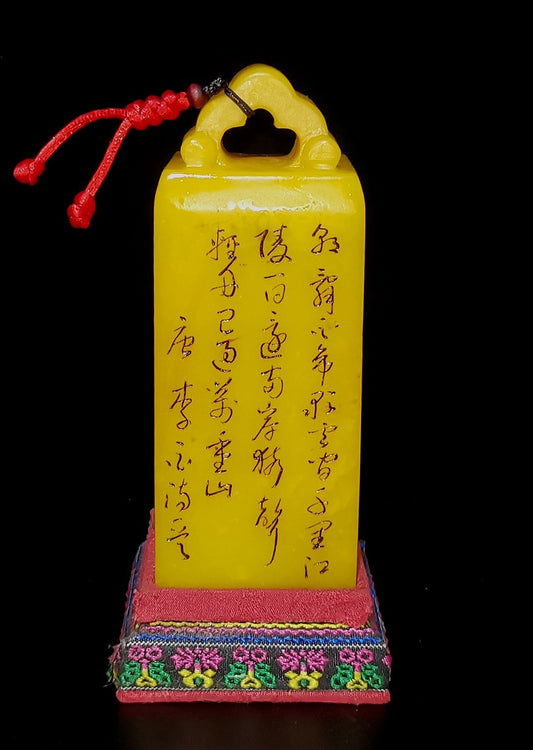 朝辭白帝彩雲間千里江
陵一日還兩岸猿聲
輕舟已過萬重山
唐 李白詩